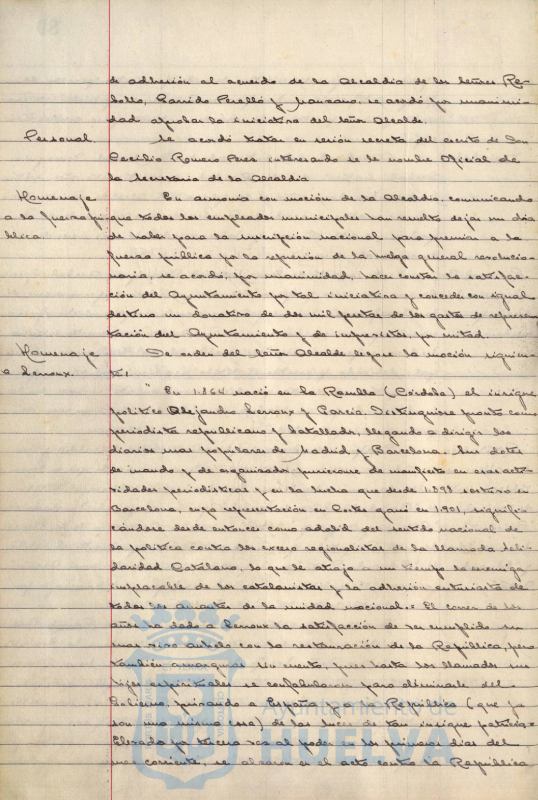 de adhesión al acuerdo de la Alcaldía de los señores Re-
bollo, Garrido Perelló y Manzano, se acordó por unanimi-
dad aprobar la iniciativa del señor Alcalde.
Personal. Se acordó tratar en sesión secreta del escrito de Don
Cecilio Romero Pérez interesando se le nombre Oficial de
la Secretaría de la Alcaldía
Homenaje En armonía con moción de la Alcaldía, comunicando
a la fuerza pú- que todos los empleados municipales han resuelto dejar un día
blica. de haber para la suscripción nacional para premiar a la
fuerza pública por la represión de la huelga general revolucio-
naria, se acordó, por unanimidad, hacer constar la satisfac-
ción del Ayuntamiento por tal iniciativa y conceder con igual
destino un donativo de dos mil pesetas de los gastos de represen-
tación del Ayuntamiento y de imprevistos, por mitad.
Homenaje De orden del señor Alcalde leyose la moción siguien-
a Lerroux. te:
" En 1.864 nació en la Rambla (Córdoba) el insigne
político Alejandro Lerroux y García. Distinguiose pronto como
periodista republicano y batallador, llegando a dirigir los
diarios mas populares de Madrid y Barcelona. Sus dotes
de mando y de organizador pusieronse de manifiesto en esas acti-
vidades periodísticas y en la lucha que desde 1.898 sostuvo en
Barcelona, cuya representación en Cortes ganó en 1.901, signifi-
cándose desde entonces como adalid del sentido nacional de
la política contra los excesos regionalistas de la llamada Soli-
daridad Catalana, lo que le atrajo a un tiempo la enemiga
implacable de los catalanistas y la adhesión entusiasta de
todos los amantes de la unidad nacional.= El correr de los
años ha dado a Lerroux la satisfacción de ver cumplido su
mas vivo anhelo con la restauración de la República, pero
también amarguras sin cuento, pues hasta los llamados sus
hijos espirituales se confabularon para eliminarle del
Gobierno, privando a España y a la República (que ya
son una misma cosa) de las luces de tan insigne patricio.=
Elevado por tercera vez al poder en los primeros días del
mes corriente, se alzaron en el acto contra la República
Ayuntamiento de
HUELVA